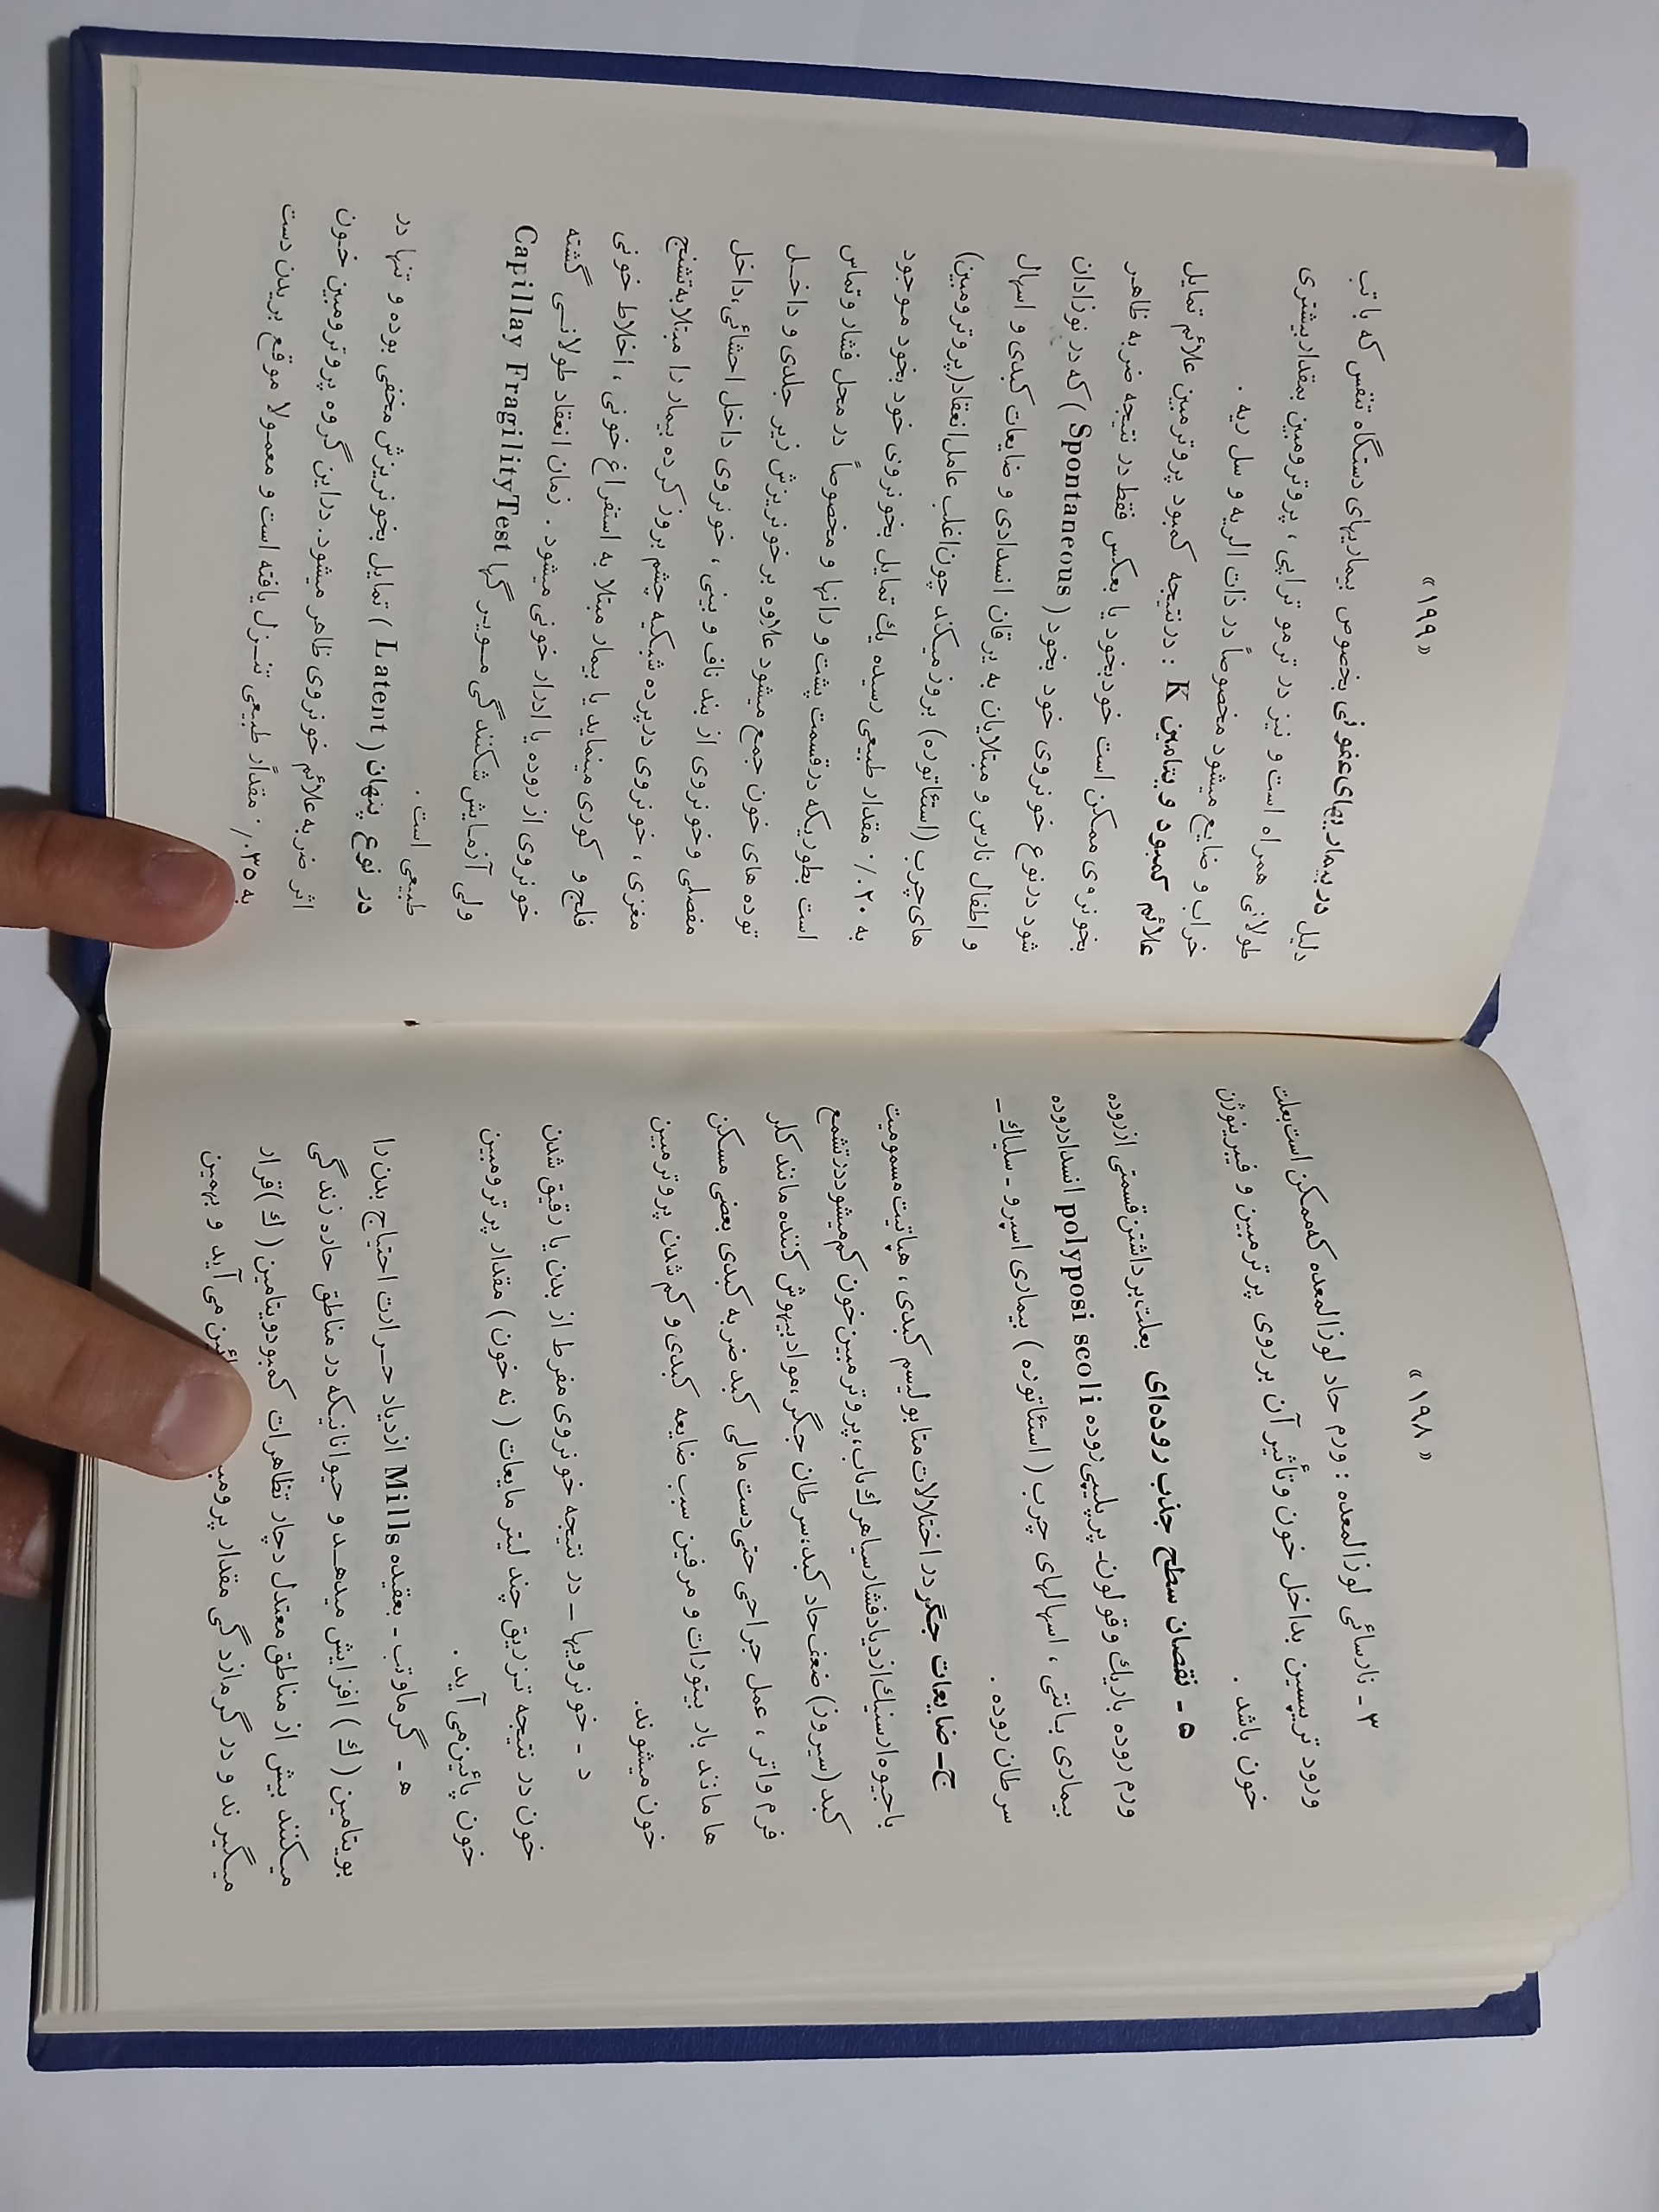 «۱۹۸»
۳ - نارسائی لوزالمعده : ورم حاد لوزالمعده که ممکن است بعلت
ورود تریپسین بداخل خون و تأثیر آن بر روی پرترمبین و فیبرینوژن
خون باشد .
۵ - نقصان سطح جذب روده‌ای بعلت برداشتن قسمتی از روده
ورم روده باریك و قولون- پرپلیپی روده polyposi scoli انسداد روده
بیماری بانتی ، اسهالهای چرب ( استئاتوزه ) بیماری اسپرو - سلیاك -
سرطان روده .
ج - ضایعات جگر در اختلالات متابولیسم کبدی ، هپاتیت مسمومیت
با جیوه ارسنیك ازدیاد فشار سیاهرك باب، پروترمبین خون کم میشود در تشمع
کبد (سیروز) ضعف حاد کبد، سرطان جگر، مواد بیهوش کننده مانند کلر
فرم و اتر ، عمل جراحی حتی دست مالی کبد ضربه کبدی بعضی مسکن
ها مانند باربیتورات و مرفین سبب ضایعه کبدی و کم شدن پروترمبین
خون میشوند.
د - خونرویها - در نتیجه خونروی مفرط از بدن یا رقیق شدن
خون در نتیجه تزریق چند لیتر مایعات ( نه خون ) مقدار پرترومبین
خون پائین می‌آید .
ه - گرما و تب - بعقیده Mills ازدیاد حرارت احتیاج بدن را
بویتامین ( ك ) افزایش میدهد و حیواناتیکه در مناطق حاره زندگی
میکنند بیش از مناطق معتدل دچار تظاهرات کمبود ویتامین ( ك ) قرار
میگیرند و در گرمازدگی مقدار می‌آید و بهمین
«۱۹۹»
دلیل در بیماریهای عفونی بخصوص بیماریهای دستگاه تنفس که با تب
طولانی همراه است و نیز در ترموتراپی ، پروترومبین بمقدار بیشتری
خراب و ضایع میشود مخصوصاً در ذات الریه و سل ریه .
علائم کمبود ویتامین K : در نتیجه کمبود پروترمبین علائم تمایل
بخونروی ممکن است خودبخود یا بعکس فقط در نتیجه ضربه ظاهر
شود در نوع خونروی خود بخود ( Spontaneous ) که در نوزادان
و اطفال نارس و مبتلایان به یرقان انسدادی و ضایعات کبدی و اسهال
های چرب (استئاتوزه) بروز میکند چون اغلب عامل انعقاد(پروترومبین)
به ۲۰٪ مقدار طبیعی رسیده یك تمایل بخونروی خود بخود موجود
است بطوریکه در قسمت پشت و رانها و مخصوصاً در محل فشار و تماس
توده های خون جمع میشود علاوه بر خونریزش زیر جلدی و داخل
مفصلی و خونروی از بند ناف و بینی ، خونروی داخل احشائی، داخل
مغزی ، خونروی در پرده شبکیه چشم بروز کرده بیمار را مبتلا به تشنج
فلج و کوری مینماید یا بیمار مبتلا به استفراغ خونی ، اخلاط خونی
خونروی از روده یا ادرار خونی میشود . زمان انعقاد طولانی گشته
ولی آزمایش شکنندگی مویرگها Capillay Fragility Test
طبیعی است .
در نوع پنهان ( Latent ) تمایل بخونریزش مخفی بوده و تنها در
اثر ضربه علائم خونروی ظاهر میشود. در این گروه پروترومبین خون
به ۳۵٪ مقدار طبیعی تنزل یافته است و معمولا موقع بریدن دست